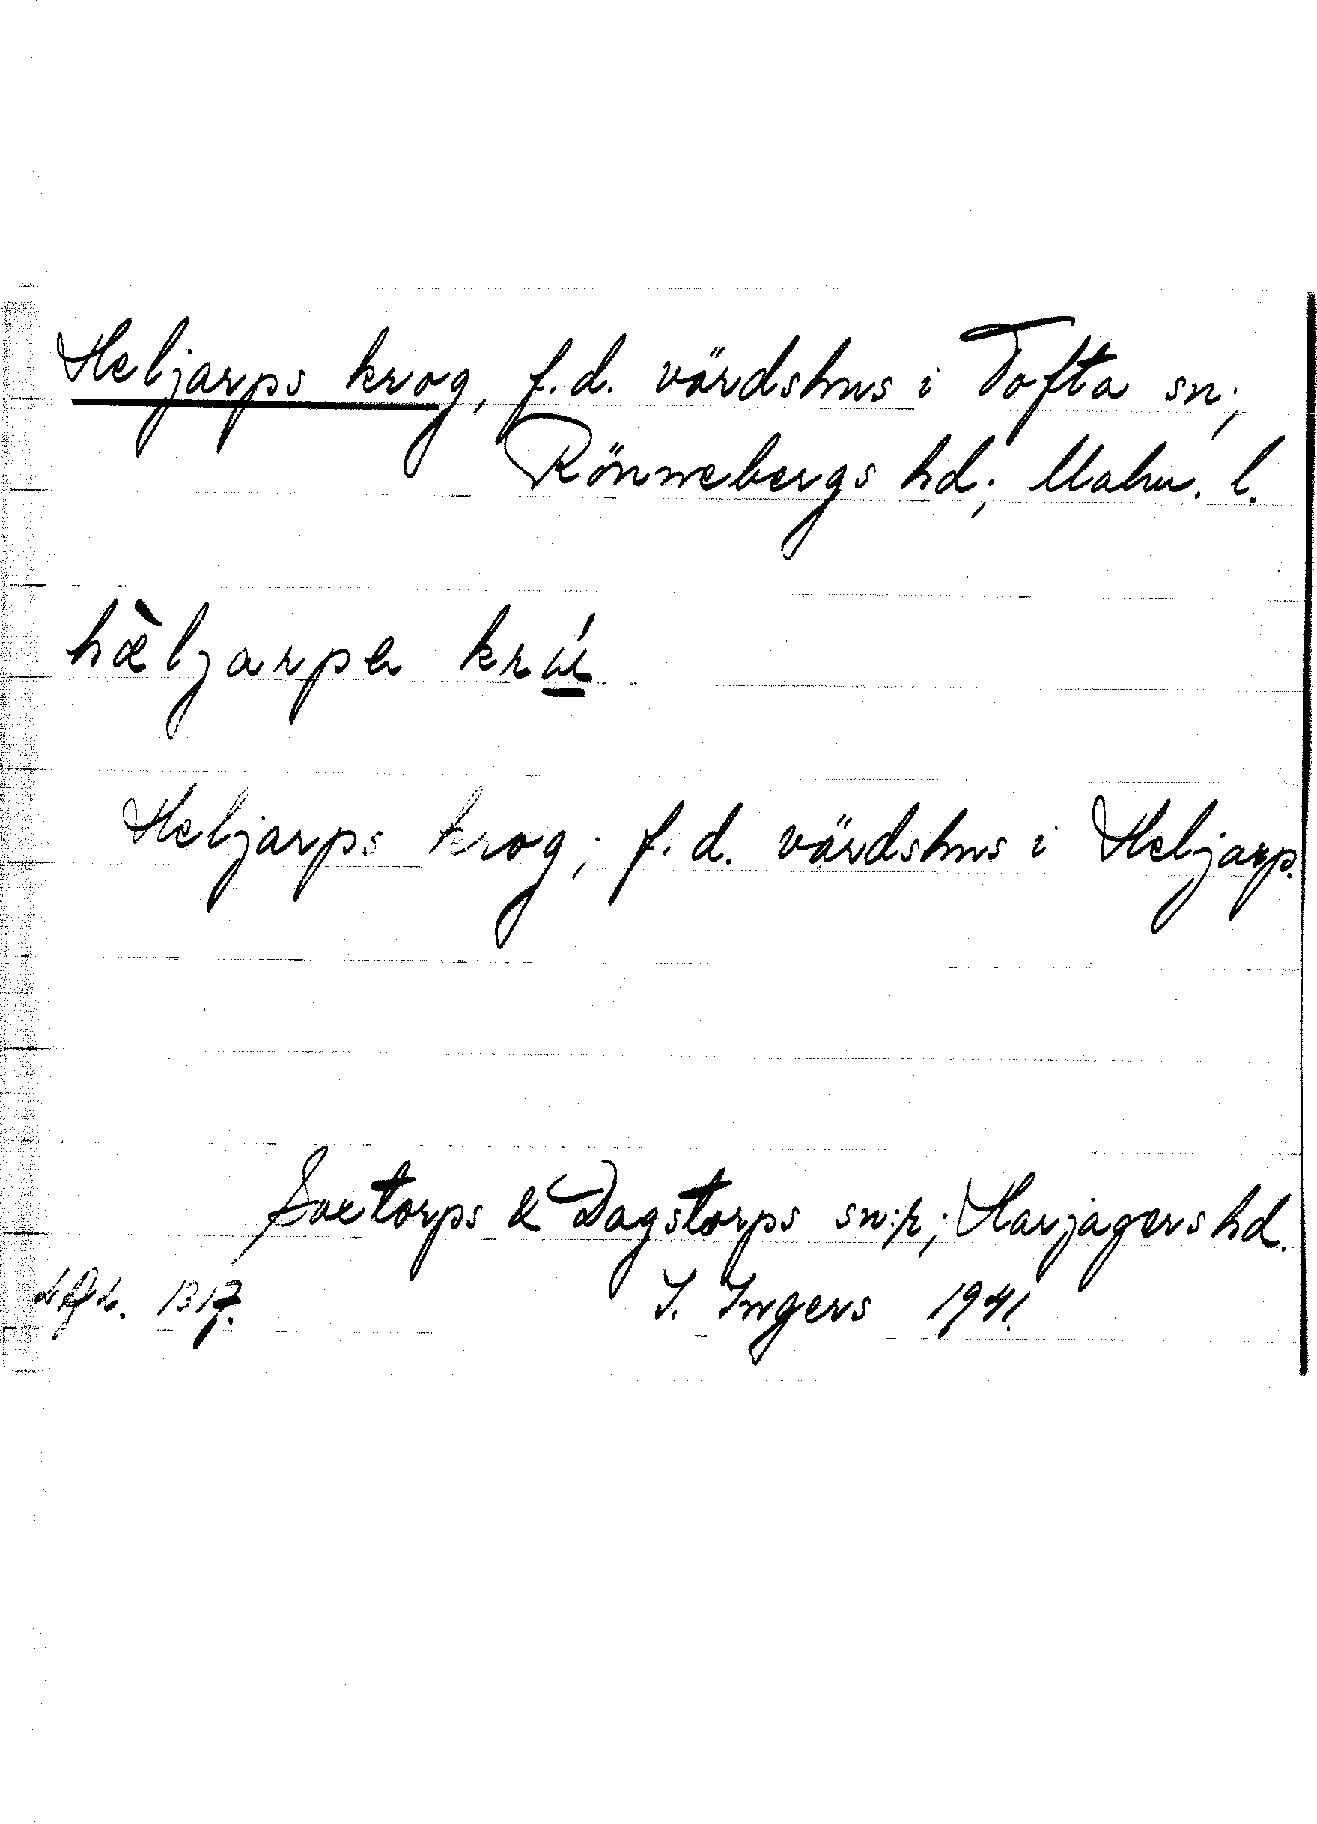 Heljarps krog, f.d. värdshus i Tofta sn;
Rönnebergs hd; Malm. l.
hæ̀ljarpa krú
Heljarps krog; f.d. värdshus i Heljarp.
Saxtorps & Dagstorps sn:r; Harjagers hd.
1317. I. Ingers 1941.